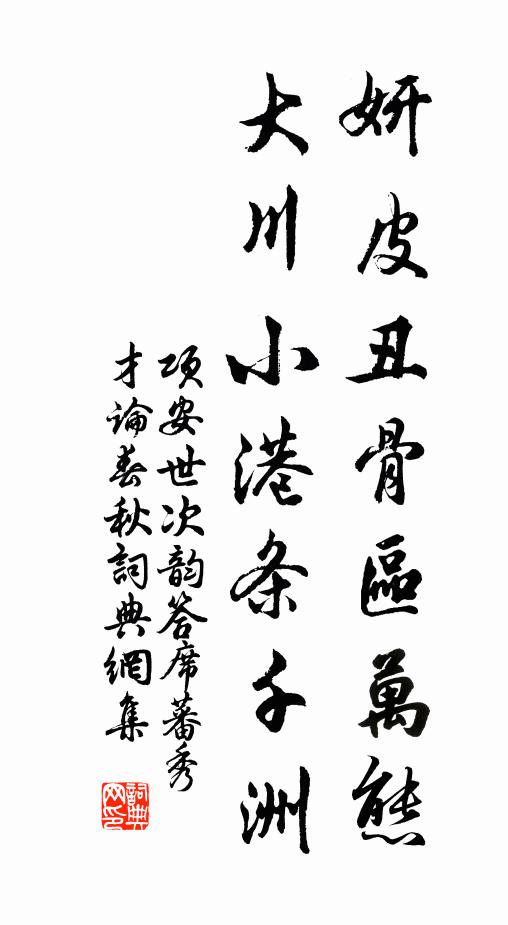 妍皮丑骨區萬態
大川小港条千洲
項安世次韵答席蕃秀
才論春秋詞典網集
詞典网印